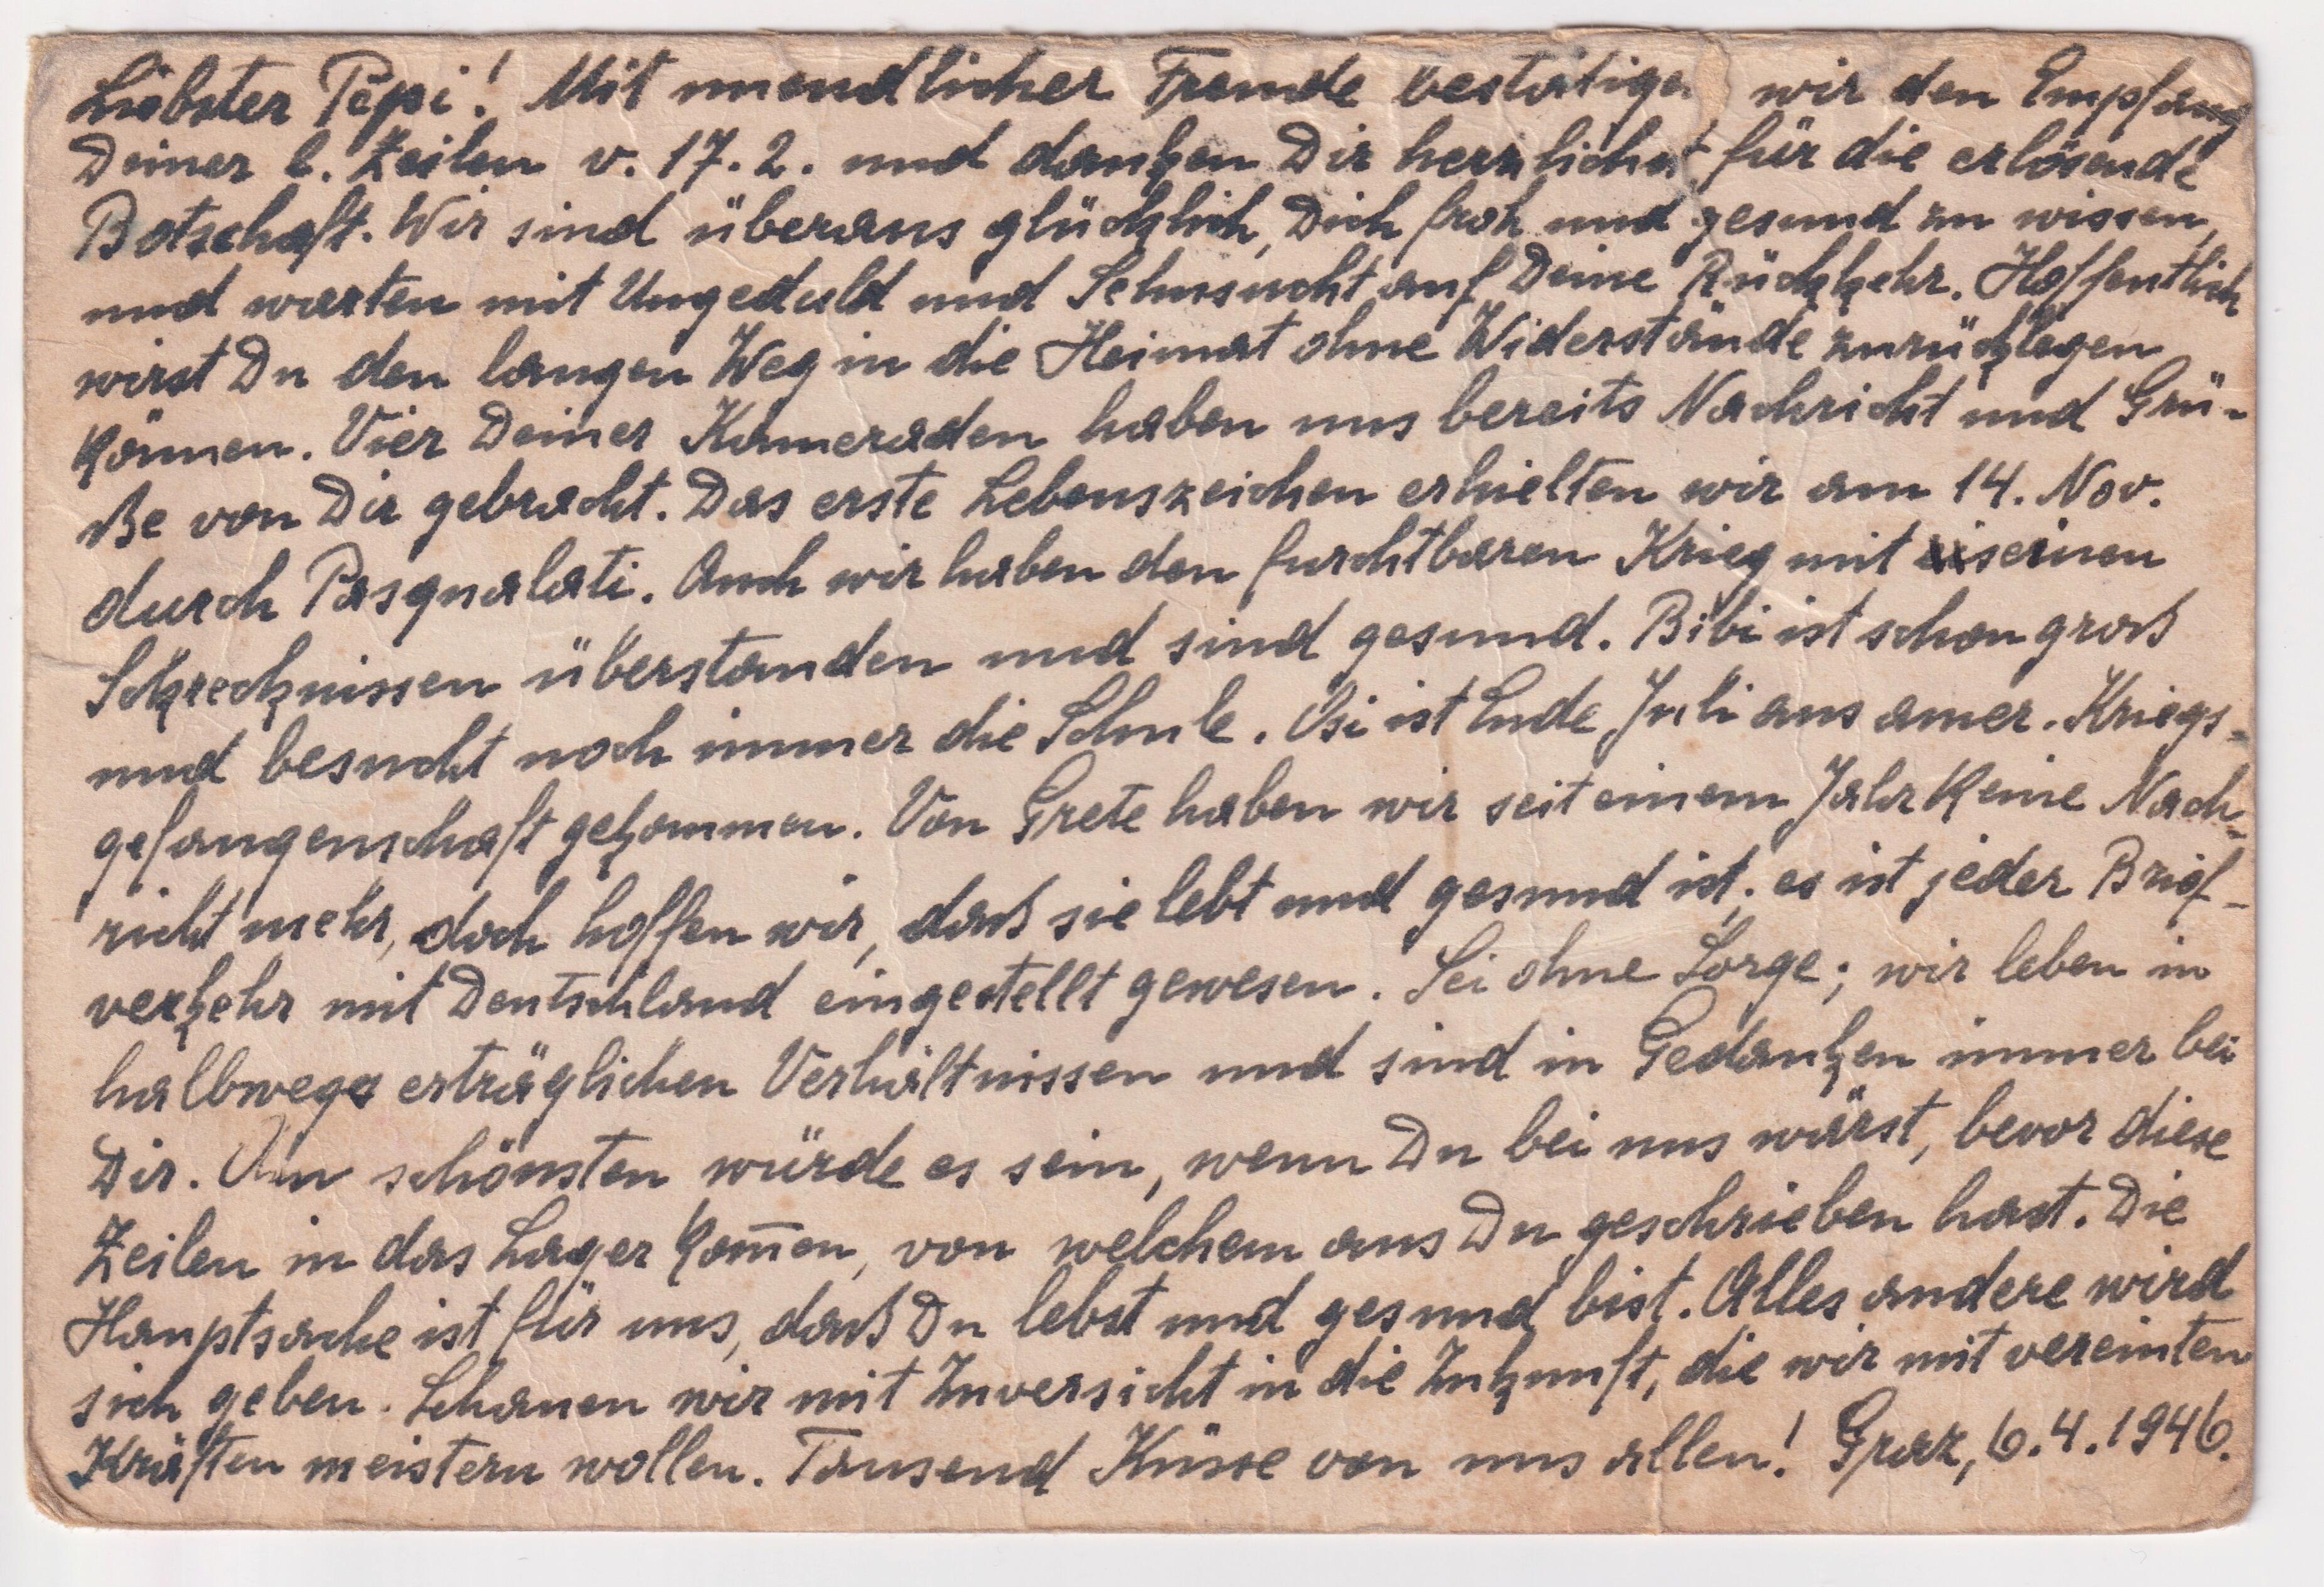 Liebster Pepi! Mit unendlicher Freude bestätigen wir den Empfang
Deiner l. Zeilen v. 17.2. und danken Dir herzlichst für die erlösende
Botschaft. Wir sind überaus glücklich, Dich froh und gesund zu wissen,
und warten mit Ungeduld und Sehnsucht auf Deine Rückkehr. Hoffentlich
wirst Du den langen Weg in die Heimat ohne Widerstände zurücklegen
können. Vier Deiner Kameraden haben uns bereits Nachricht und Grü-
ße von Dir gebracht. Das erste Lebenszeichen erhielten wir am 14. Nov.
durch Pasqualati. Auch wir haben den furchtbaren Krieg mit seinen
Schrecknissen überstanden und sind gesund. Bibi ist schon groß
und besucht noch immer die Schule. Osi ist Ende Juli aus amer. Kriegs-
gefangenschaft gekommen. Von Grete haben wir seit einem Jahr keine Nach-
richt mehr, doch hoffen wir, daß sie lebt und gesund ist; es ist jeder Brief-
verkehr mit Deutschland eingestellt gewesen. Sei ohne Sorge; wir leben in
halbwegs erträglichen Verhältnissen und sind in Gedanken immer bei
Dir. Am schönsten würde es sein, wenn Du bei uns wärst, bevor diese
Zeilen in das Lager kom̅en, von welchem aus Du geschrieben hast. Die
Hauptsache ist für uns, daß Du lebst und gesund bist. Alles andere wird
sich geben. Schauen wir mit Zuversicht in die Zukunft, die wir mit vereinten
Kräften meistern wollen. Tausend Küsse von uns allen! Graz, 6.4.1946.